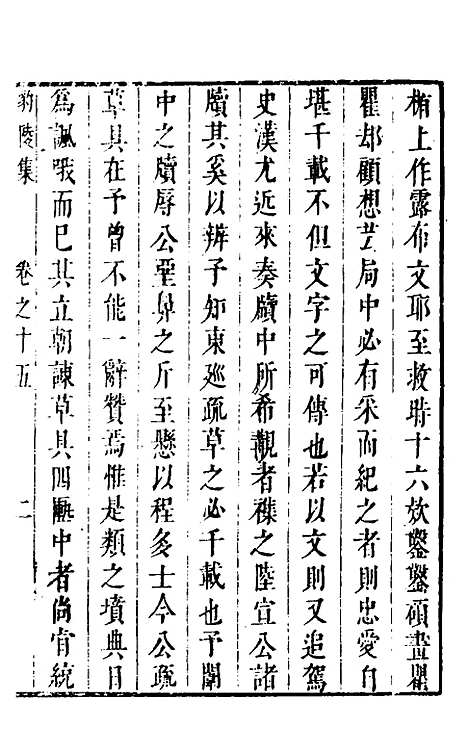 楯上作露布文耶至救時十六欸鑿鑿碩畫瞿
瞿却顧想芸局中必有采而紀之者則忠愛自
堪千載不但文字之可傳也若以文則又追駕
史漢尤近來奏牘中所希覯者襍之陸宣公諸
牘其奚以辨予知東廵疏草之必千載也予闈
中之牘辱公堊鼻之斤至懸以程多士今公疏
草具在予曾不能一辭贊焉惟是類之墳典日
爲諷哦而已其立朝諫草具四中者尚官統
豹陵集 卷之十五 二